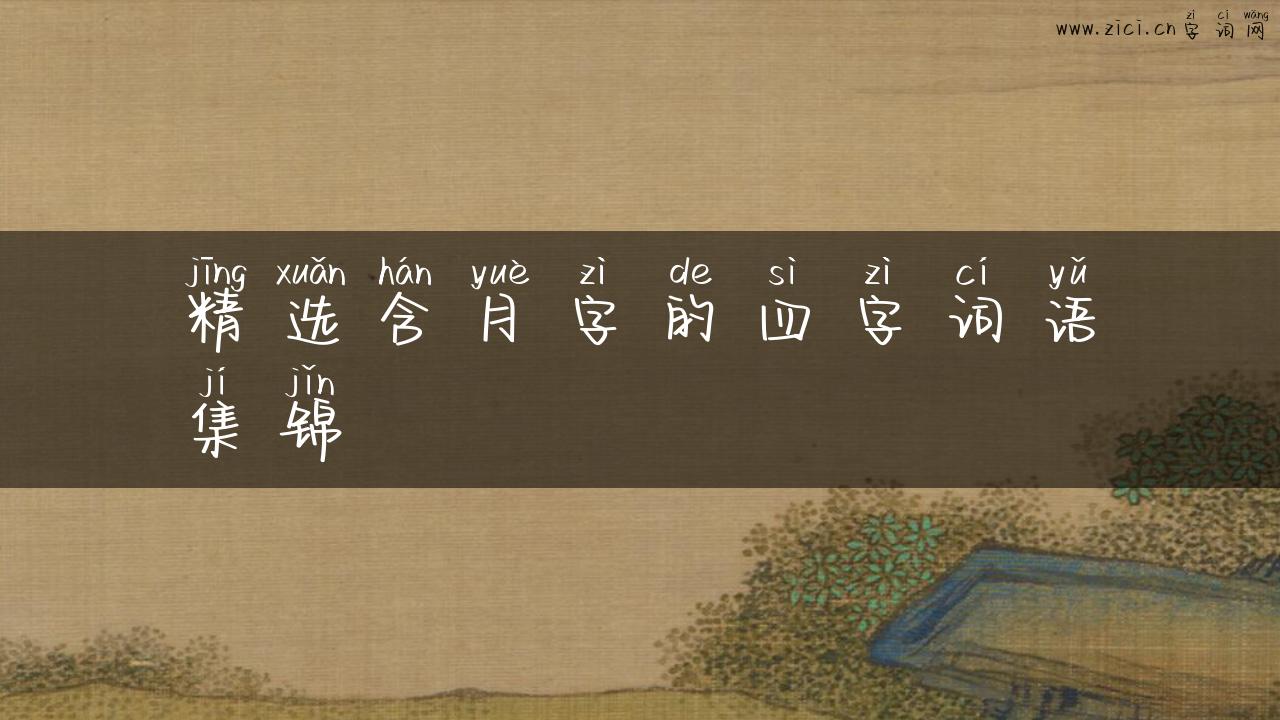 zì cí wǎng
www.zici.cn字词网
jīng xuǎn hán yuè zì de sì zì cí yǔ
精选含月字的四字词语
jí jǐn
集锦